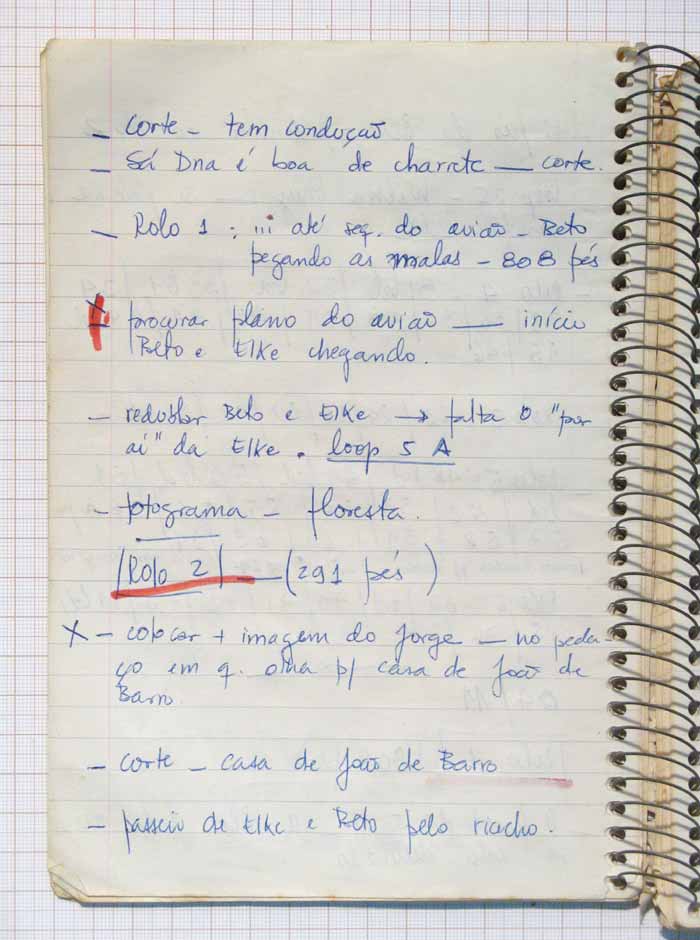 – corte – tem condução
– Sá Dna é boa de charrete — corte.
– Rolo 1 : ... até seq. do avião – Beto
pegando as malas – 808 pés
X – procurar plano do avião — início
Beto e Elke chegando.
– redublar Beto e Elke → falta o "por
aí" da Elke. loop 5 A
– fotograma – floresta.
Rolo 2 — (291 pés)
X – colocar + imagem do Jorge — no peda-
ço em q. olha p/ casa de João de
Barro.
– corte – casa de João de Barro
– passeio de Elke e Beto pelo riacho.